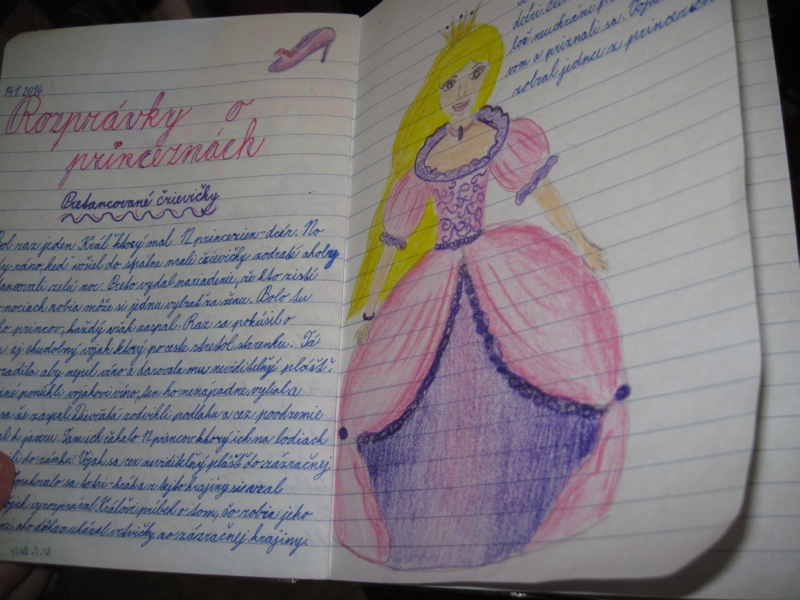 14.1.2014
Rozprávky o
princeznách
Pretancované črievičky
Bol raz jeden Kráľ ktorý mal 12 princezien-dcér. No
ráno, keď vošiel do spálne mali črievičky zodraté akoby
tancovali celú noc. Preto vydal nariadenie, že kto zistí
nociach robia môže si jednu vybrať za ženu. Bolo tu
princov, každý však zaspal. Raz sa pokúsil o
aj chudobný vojak ktorý po ceste stretol starenku. Tá
poradila aby nepil víno a darovala mu neviditeľný plášť.
ponúkli vojakovi víno, ten ho nenápadne vylial a
sa že zaspal. Dievčatá zodvihli podlahu a cez podzemie
k jazeru. Tam ich čakalo 12 princov ktorý ich na lodiach
do zámku. Vojak sa cez neviditeľný plášť do zázračnej
Opakovalo sa to z tejto krajiny si vzal
vyrozprával Kráľovi príbeh o tom, čo robia jeho
ako dôkaz ukázal vetvičky zo zázračnej krajiny.
dcéri.
neuchráni
vom a priznali sa.
zobral jednu z princezien